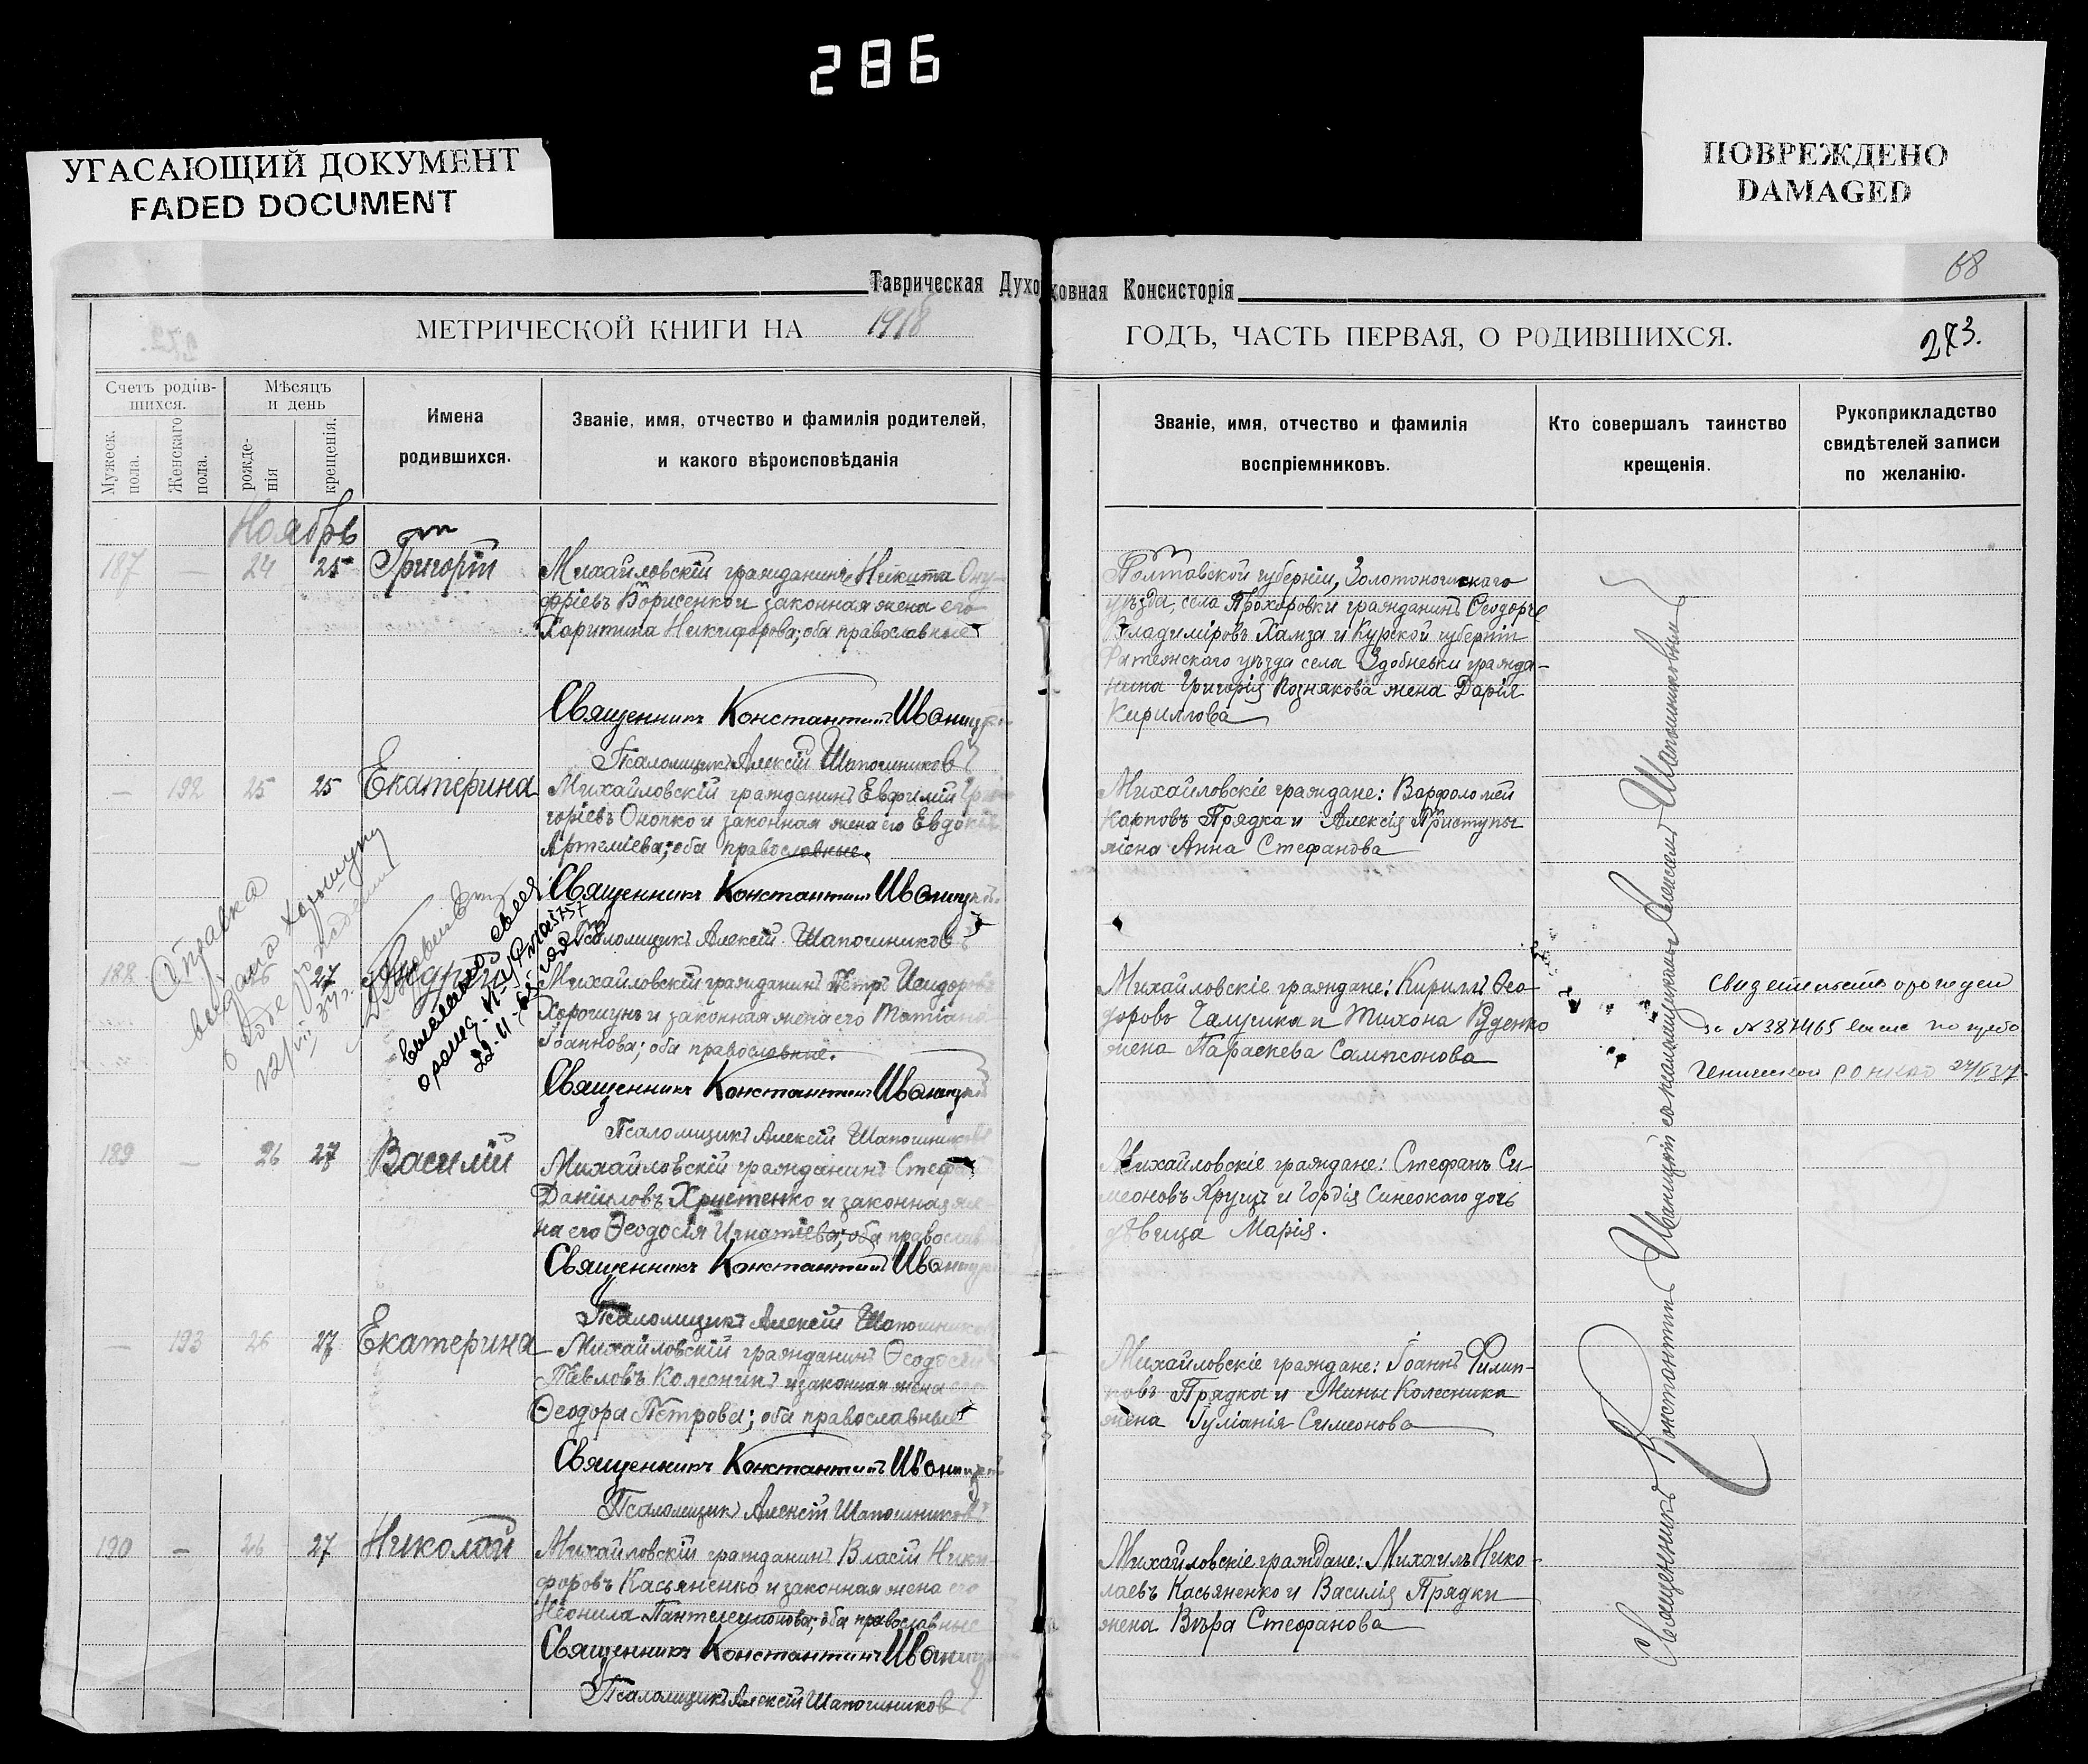 286
УГАСАЮЩИЙ ДОКУМЕНТ
FADED DOCUMENT
ПОВРЕЖДЕНО
DAMAGED
Таврическая Духо
ховная Консисторія
68
МЕТРИЧЕСКОЙ КНИГИ НА 1918
ГОДЪ, ЧАСТЬ ПЕРВАЯ, О РОДИВШИХСЯ.
273.
Счетъ родив-
шихся.
Мужеск.
пола.
Женскаго
пола.
Мѣсяцъ
и день
рожде-
нія
крещенія.
Имена
родившихся.
Званіе, имя, отчество и фамилія родителей,
и какого вѣроисповѣданія
Званіе, имя, отчество и фамилія
воспріемниковъ.
Кто совершалъ таинство
крещенія.
Рукоприкладство
свидѣтелей записи
по желанію.
Ноябрь
187 — 24 25 Григорій
Михайловскій гражданинъ Никита Ону-
фріевъ Борисенко и законная жена его
Харитина Никифорова; оба православные
Священникъ Константинъ Иваницкій
Псаломщикъ Алексій Шапошниковъ
Полтавской губерніи, Золотоношскаго
уѣзда, села Прохоровки гражданинъ Ѳеодоръ
Владиміровъ Хамза и Курской губерніи
уѣзда села гражда-
нина Григорія Познякова жена Дарія
Кириллова
— 192 25 25 Екатерина
Михайловскій гражданинъ Евфимій Гри-
горіевъ Онопко и законная жена его Евдокія
Артеміева; оба православные.
Священникъ Константинъ Иваницкій
Псаломщикъ Алексій Шапошниковъ
Михайловскіе граждане: Варфоломей
Карповъ Прядка и Алексія Приступы
жена Анна Стефанова
Справка
выдана Хорошуну
о годе рождения
12/VII 37 г.
188 — 26 27 Андрей
22-11-
Михайловскій гражданинъ Петръ Исидоровъ
Хорошунъ и законная жена его Татіана
Іоаннова; оба православные.
Священникъ Константинъ Иваницкій
Псаломщикъ Алексій Шапошниковъ
Михайловскіе граждане: Кириллъ Ѳео-
доровъ Галушка и Тихона Руденко
жена Параскева Сампсонова
Свидетельство о рожден
за № 387465
Генический 27/V 37.
189 — 26 27 Василій
Михайловскій гражданинъ Стефанъ
Даніиловъ Христенко и законная же-
на его Ѳеодосія Игнатіева; оба православ
Священникъ Константинъ Иваницкій
Псаломщикъ Алексій Шапошниковъ
Михайловскіе граждане: Стефанъ Си-
меоновъ Хрущъ и Гордія Синеокаго дочь
дѣвица Марія.
— 193 26 27 Екатерина
Михайловскій гражданинъ Ѳеодосій
Павловъ Колесникъ и законная жена его
Ѳеодора Петрова; оба православные
Священникъ Константинъ Иваницкій
Псаломщикъ Алексій Шапошниковъ
Михайловскіе граждане: Іоаннъ Филип-
повъ Прядка и Мины Колесника
жена Іуліанія Симеонова
190 — 26 27 Николай
Михайловскій гражданинъ Власій Ники-
форовъ Касьяненко и законная жена его
Неонила Пантелеимонова; оба православные
Священникъ Константинъ Иваницкій
Псаломщикъ Алексій Шапошниковъ
Михайловскіе граждане: Михаилъ Нико-
лаевъ Касьяненко и Василія Прядки
жена Вѣра Стефанова
Священникъ Константинъ Иваницкій съ псаломщикомъ Алексіемъ Шапошниковымъ